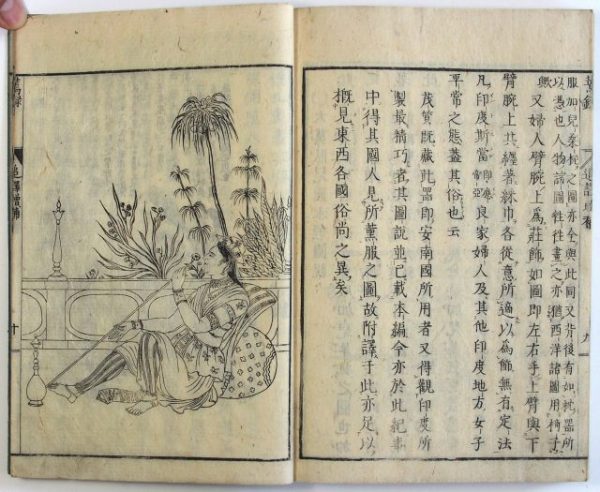 服加兒系
以憑也人物諸圖往往畫之亦猶西洋諸圖用椅子
歟又婦人臂腕上爲莊飾如圖即左右手上臂與下
臂腕上共纏著絲巾各從意所適以爲飾無有定法
凡印度斯當良家婦人及其他印度地方女子
平常之態蓋其俗也云
茂質既藏此器即安南國所用者又得觀印度所
製最精巧者其圖說並已載本編今亦於此紀事
中得其國人見所薰服之圖故附譯于此亦足以
槪見東西各國俗尚之異矣
九
十